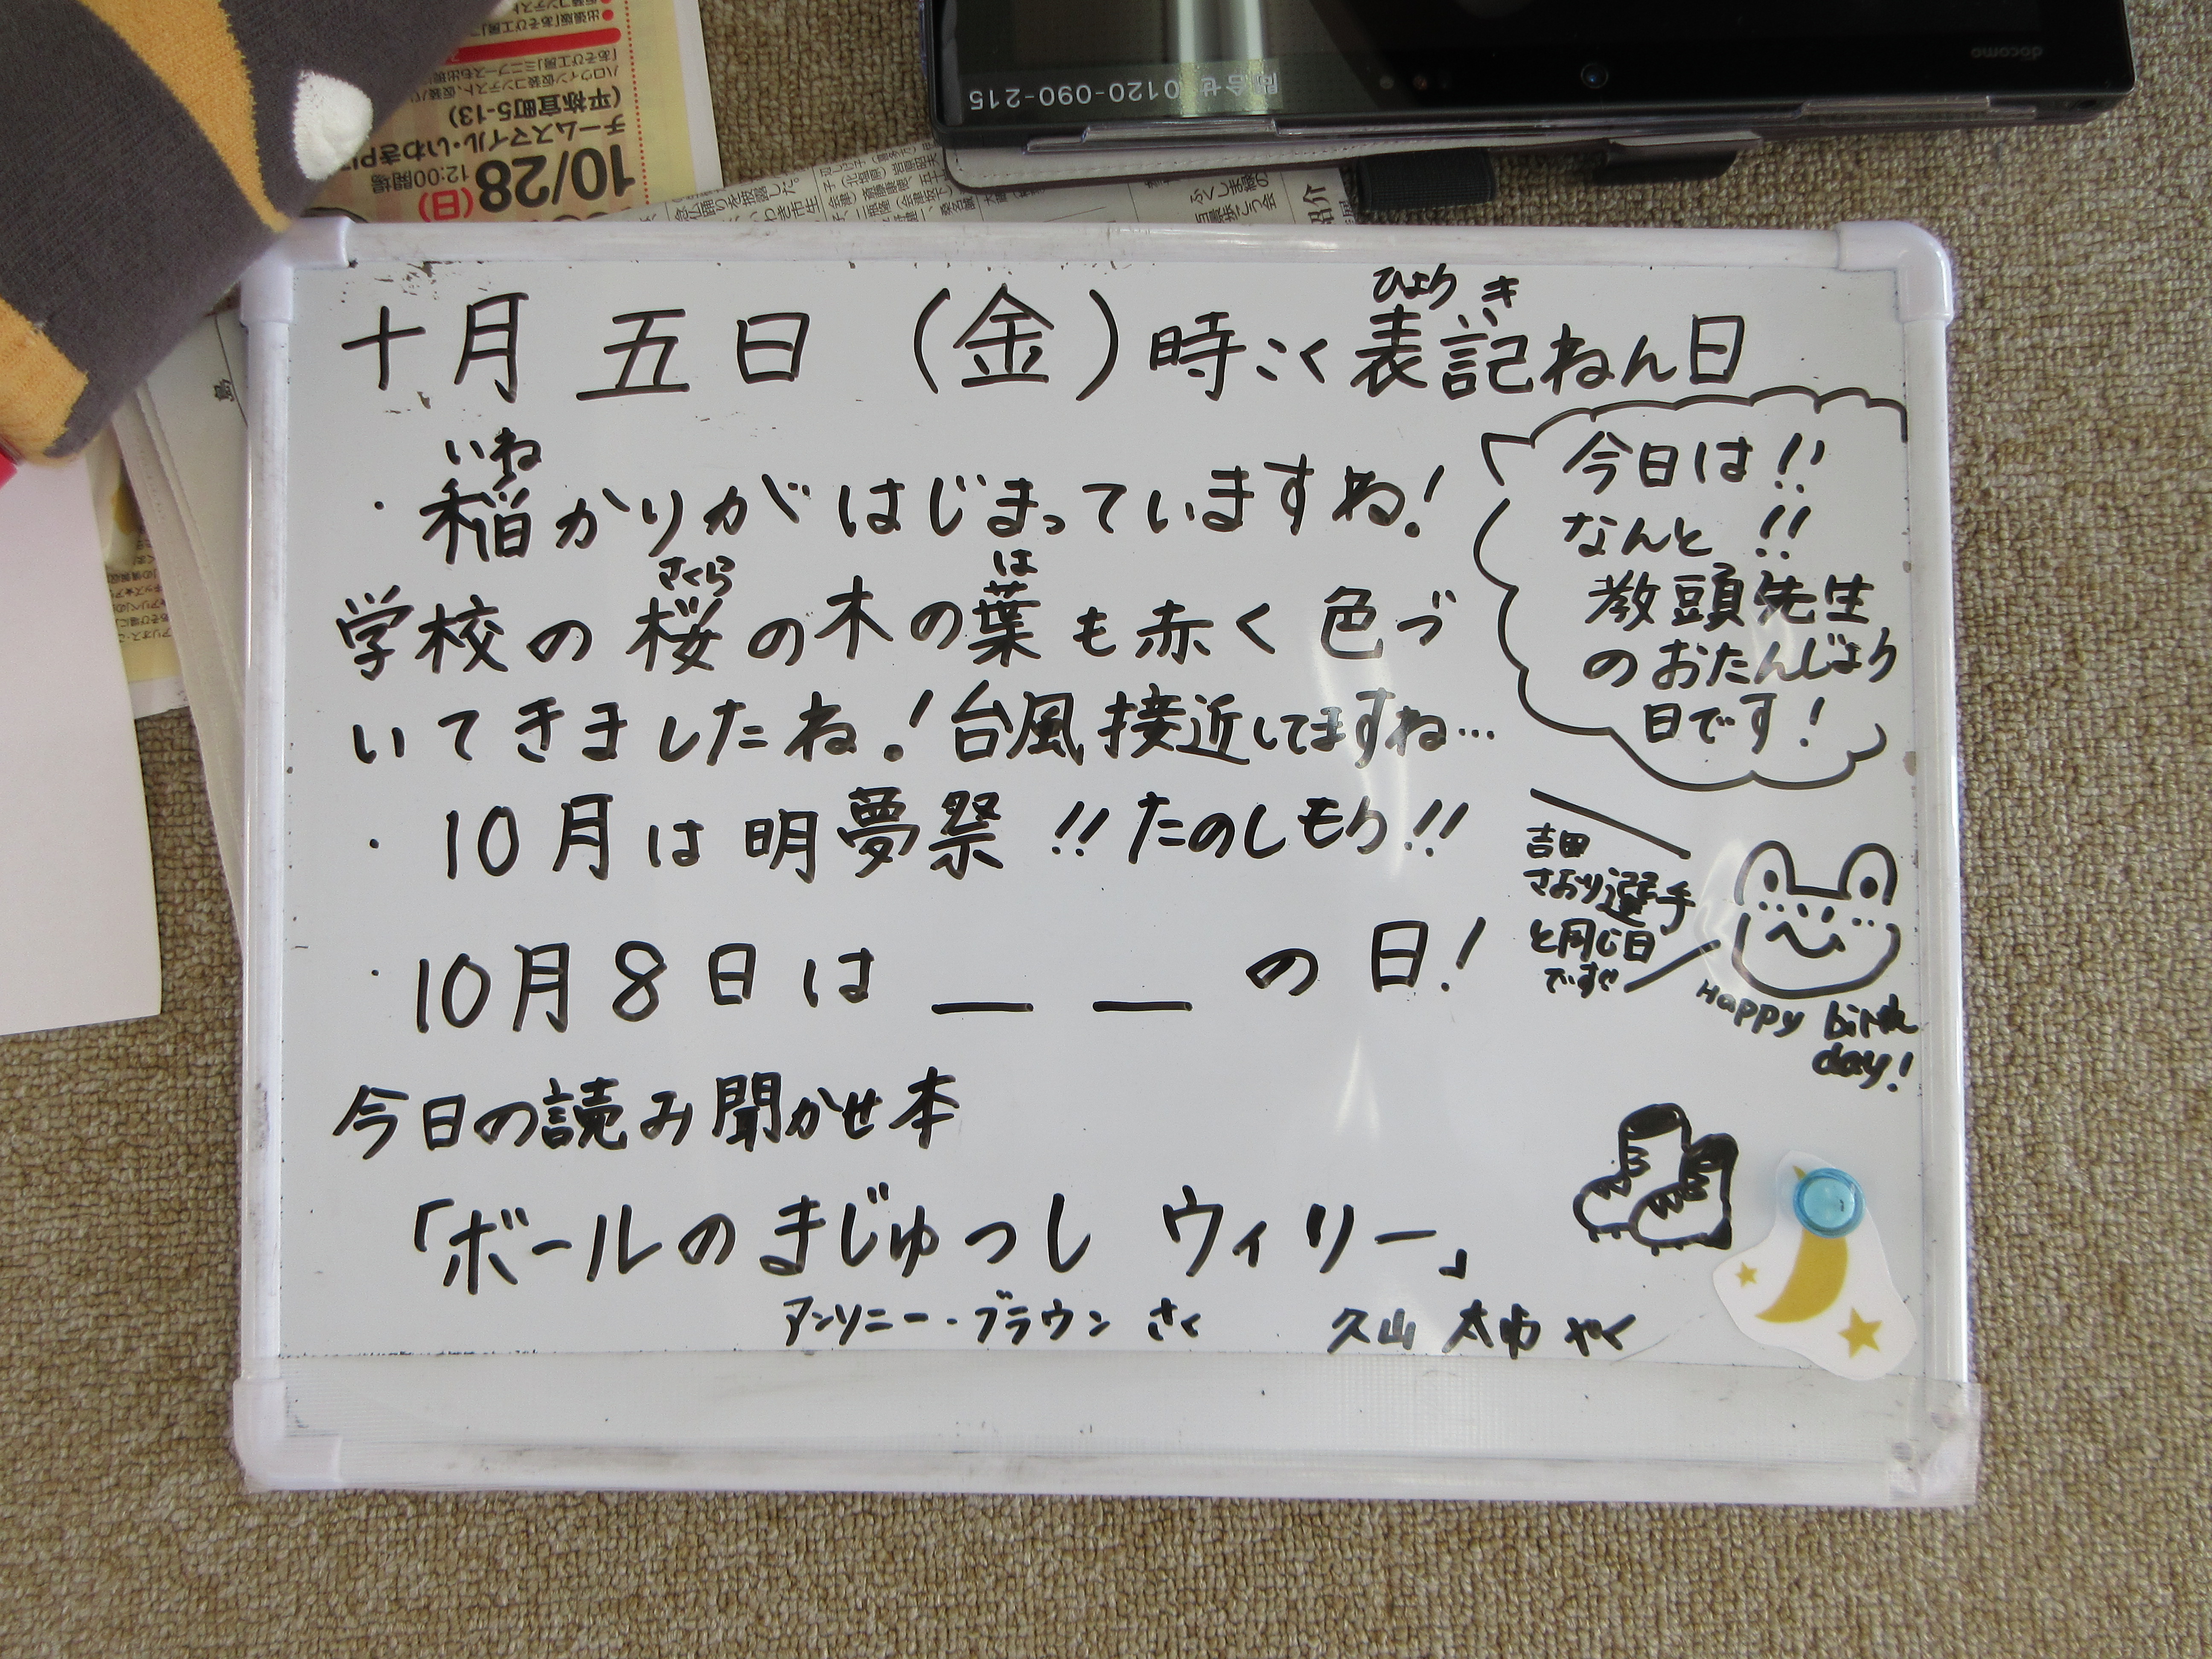 十月 五日 （金）時こく表記ねん日
ひょう き
いね
・稲かりがはじまっていますね！
さくら は
学校の桜の木の葉も赤く色づ
いてきましたね！台風接近してますね…
・10月は明夢祭!!たのしもう!!
・10月8日は＿ ＿の日！
今日の読み聞かせ本
「ボールのまじゅつし ウィリー」
アンソニー・ブラウン さく 久山 太市 やく
今日は!!
なんと!!
教頭先生
のおたんじょう
日です！
吉田
さおり選手
と同じ日
です
Happy birth
day!
問合せ 0120-090-215
docomo
10/28(日)
12:00開場
チームスマイル・いわきPI
(平祢宜町5-13)
ふくしま緑の
百景歩こう会